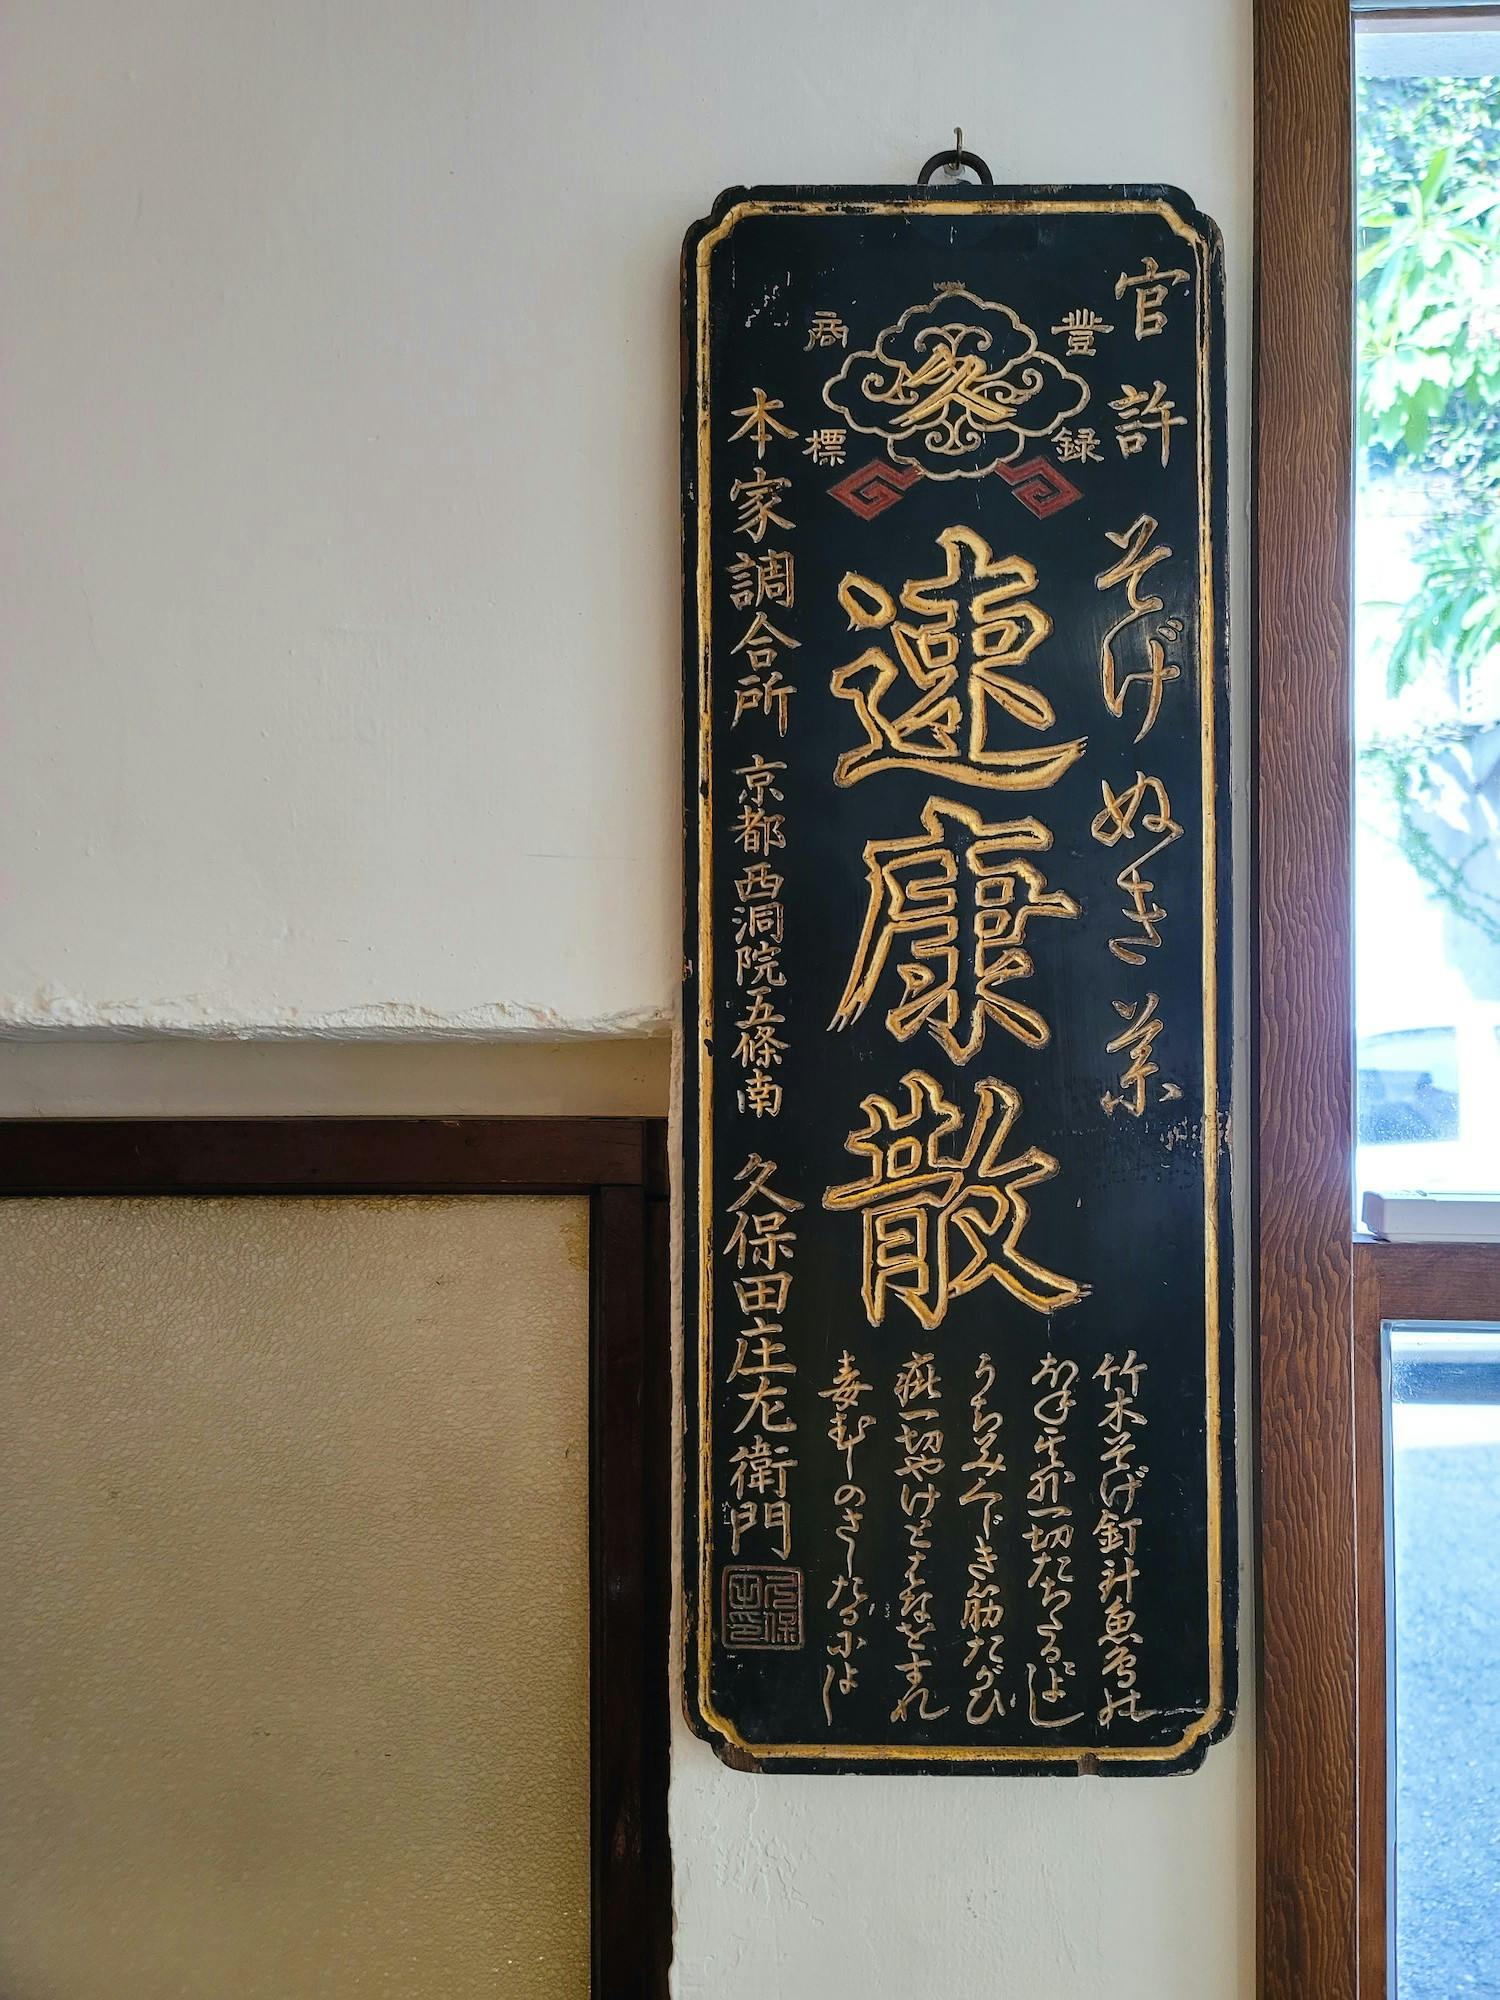 官許 そげぬき薬
豊録
商標
久
速康散
竹木そげ釘針魚鳥の
ほね其外一切たちたるによし
うちみくじき筋たがひ
疵一切やけどはなをすれ
毒むしのさしたるによし
本家調合所 京都西洞院五條南 久保田庄左衛門